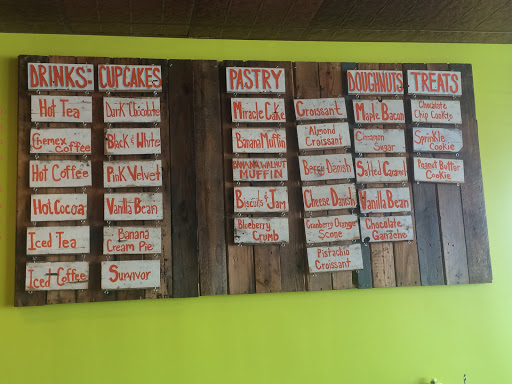 DRINKS:
Hot Tea
Chemex Coffee
Hot Coffee
Hot Cocoa
Iced Tea
Iced Coffee
CUPCAKES
Dark Chocolate
Black & White
Pink Velvet
Vanilla Bean
Banana
Cream Pie
Survivor
PASTRY
Miracle Cake
Banana Muffin
BANANA WALNUT
MUFFIN
Biscuits & Jam
Blueberry
Crumb
Croissant
Almond
Croissant
Berry Danish
Cheese Danish
Cranberry Orange
Scone
Pistachio
Croissant
DOUGHNUTS
Maple Bacon
Cinnamon
Sugar
Salted Caramel
Vanilla Bean
Chocolate
Ganache
TREATS
Chocolate
Chip Cookie
Sprinkle
Cookie
Peanut Butter
Cookie